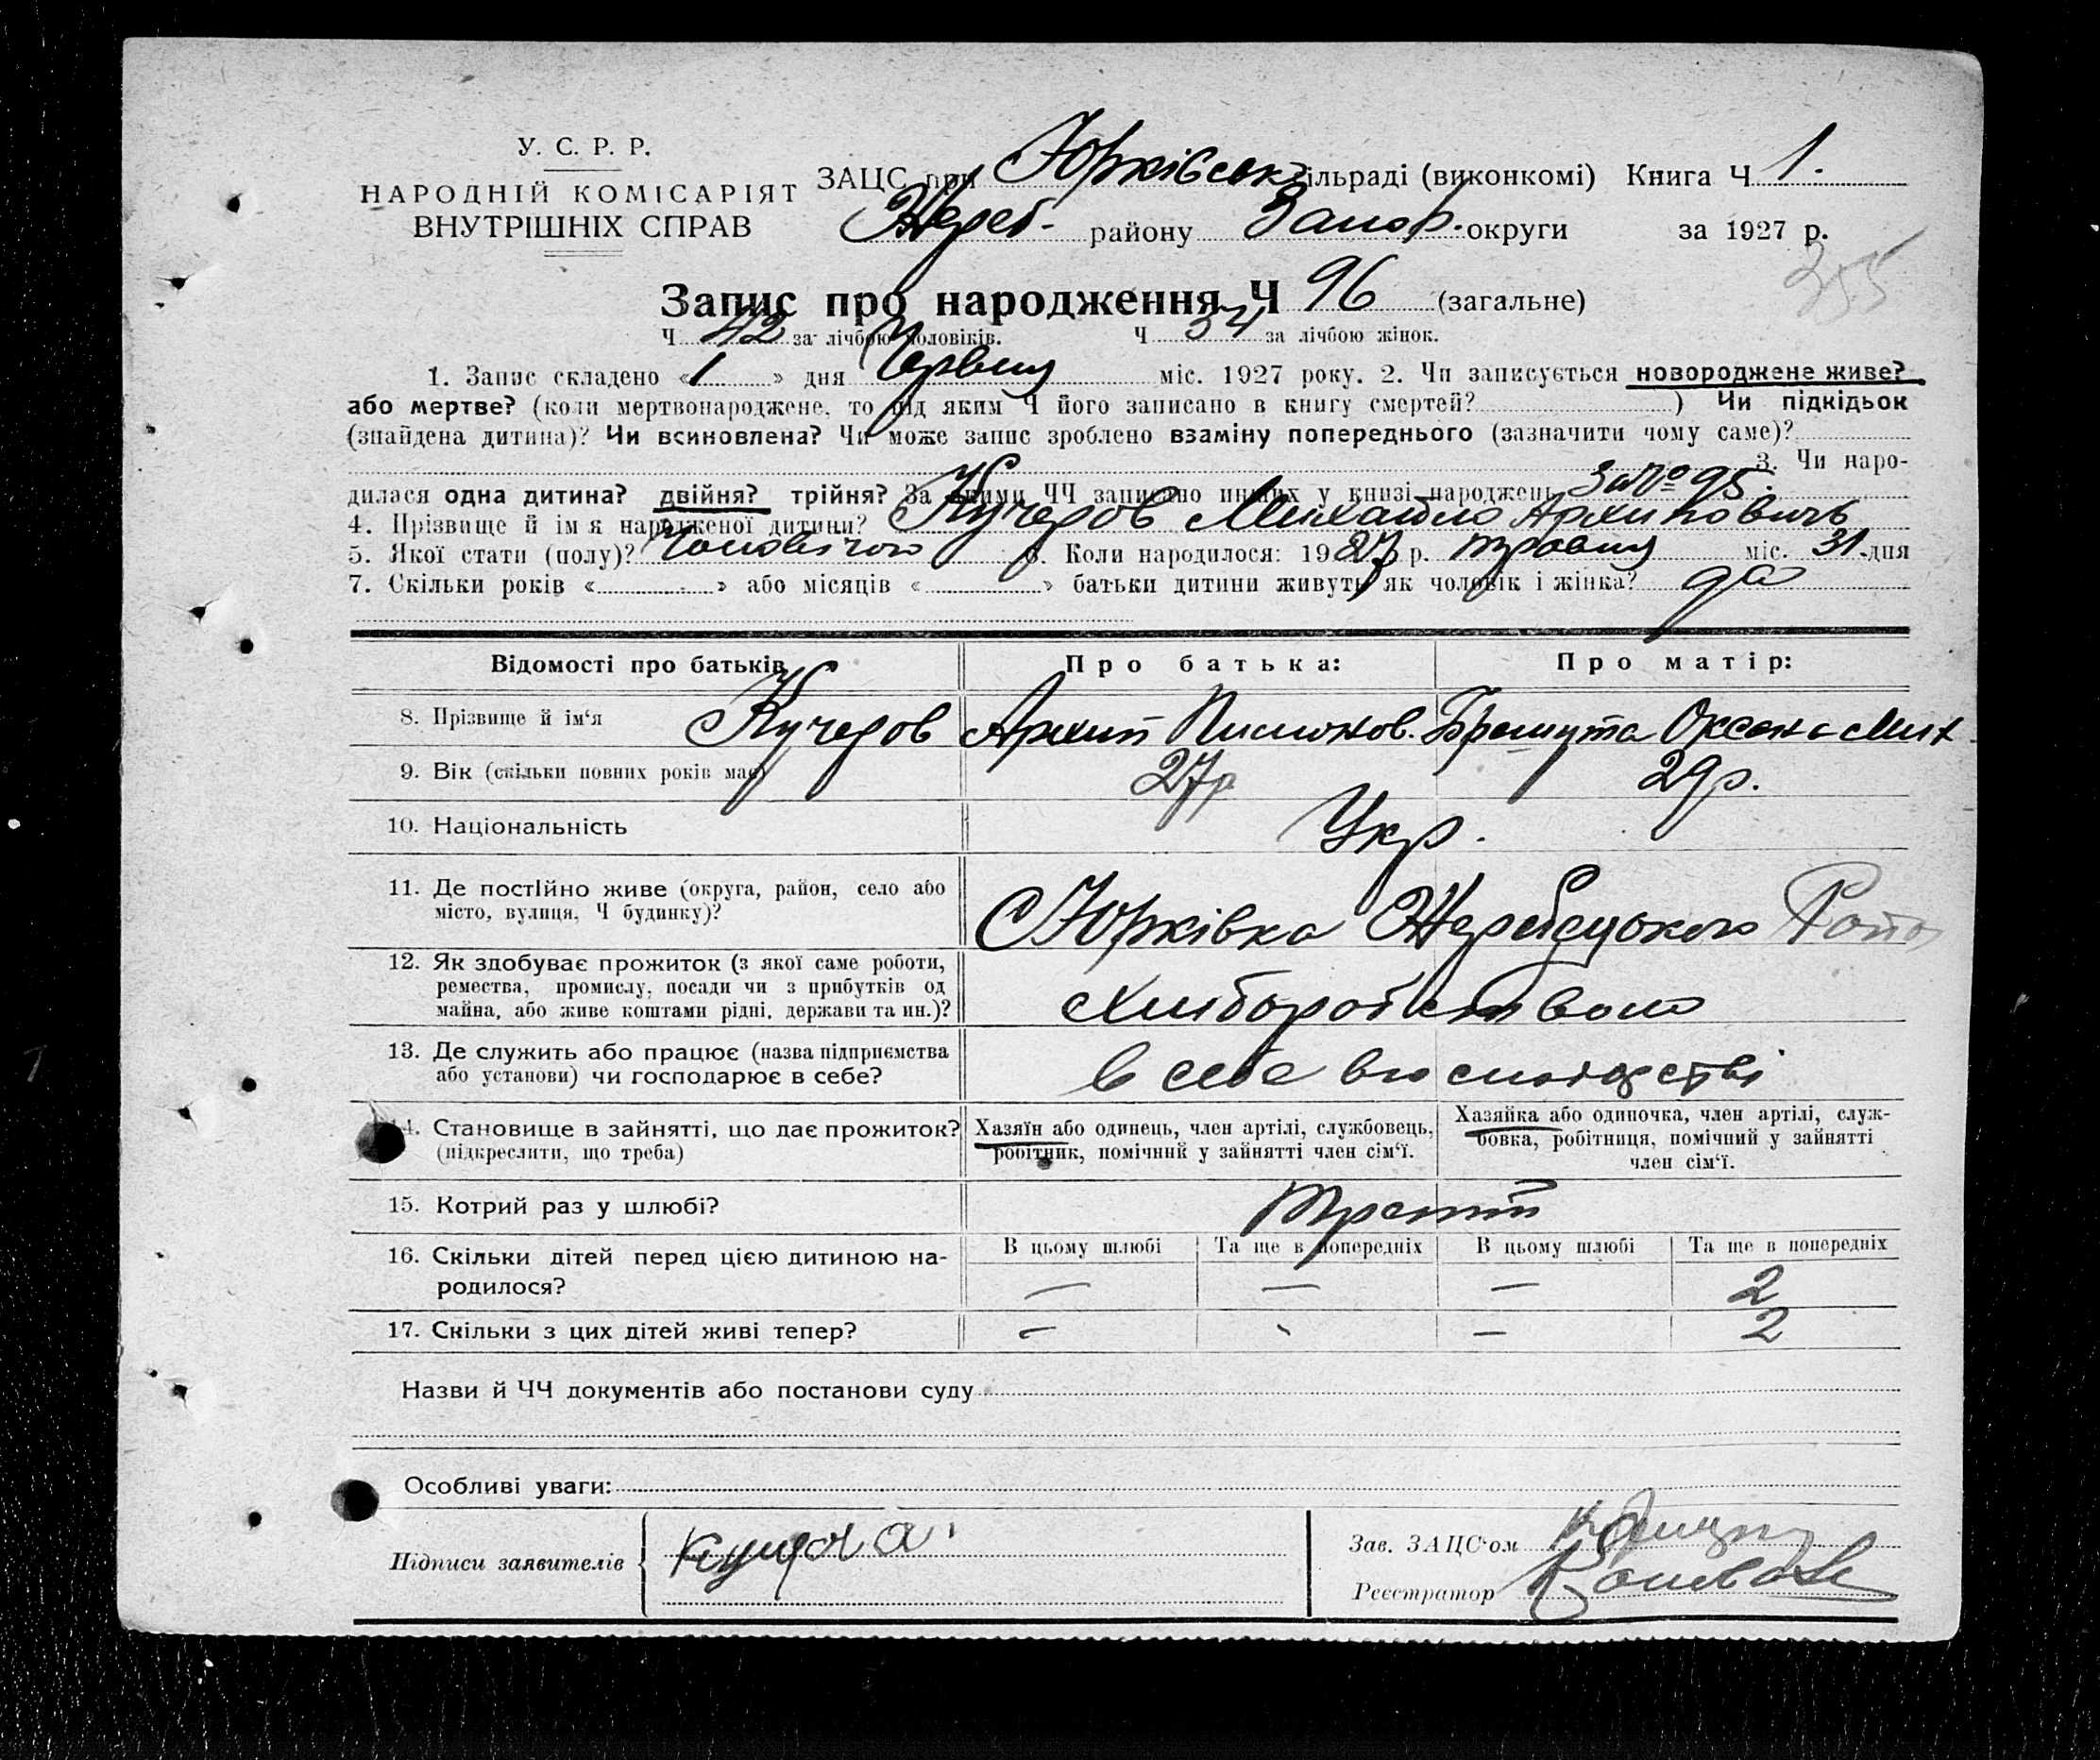 У. С. Р. Р.
НАРОДНІЙ КОМІСАРІЯТ
ВНУТРІШНІХ СПРАВ
ЗАЦС при Юрківськ сільраді (виконкомі) Книга Ч 1.
Жереб- району Запор. округи за 1927 р.
355
Запис про народження Ч 96 (загальне)
Ч 42 за лічбою чоловіків. Ч 54 за лічбою жінок.
1. Запис складено «1» дня Червня міс. 1927 року. 2. Чи записується новороджене живе?
або мертве? (коли мертвонароджене, то під яким Ч його записано в книгу смертей? ) Чи підкідьок
(знайдена дитина)? Чи всиновлена? Чи може запис зроблено взаміну попереднього (зазначити чому саме)?
3. Чи наро-
дилася одна дитина? двійня? трійня? За якими ЧЧ записано инших у книзі народжень За № 95.
4. Прізвище й ім'я народженої дитини? Кучеров Михайло Архипович
5. Якої стати (полу)? Чоловічого 6. Коли народилося: 1927 р. травня міс. 31 дня
7. Скільки років « » або місяців « » батьки дитини живуть як чоловік і жінка? 
Відомості про батьків Про батька: Про матір:
8. Прізвище й ім'я Кучеров Архип Пилипов. Оксена Мих
9. Вік (скільки повних років має) 27р 29р.
10. Національність Укр.
11. Де постІйно живе (округа, район, село або
місто, вулиця, Ч будинку)?
С Юрківка Жеребецького Райо
12. Як здобуває прожиток (з якої саме роботи,
ремества, промислу, посади чи з прибутків од
майна, або живе коштами рідні, держави та ин.)?
Хліборобством
13. Де служить або працює (назва підприємства
або установи) чи господарює в себе?
в себе в господарстві
14. Становище в зайнятті, що дає прожиток?
(підкреслити, що треба)
Хазяїн або одинець, член артілі, службовець,
робітник, помічний у зайнятті член сім'ї.
Хазяйка або одиночка, член артілі, служ-
бовка, робітниця, помічний у зайнятті
член сім'ї.
15. Котрий раз у шлюбі?
16. Скільки дітей перед цією дитиною на-
родилося?
В цьому шлюбі Та ще в попередніх В цьому шлюбі Та ще в попередніх
— — — 2
17. Скільки з цих дітей живі тепер? — - — 2
Назви й ЧЧ документів або постанови суду
Особливі уваги:
Підписи заявителів
Зав. ЗАЦС'ом
Реєстратор